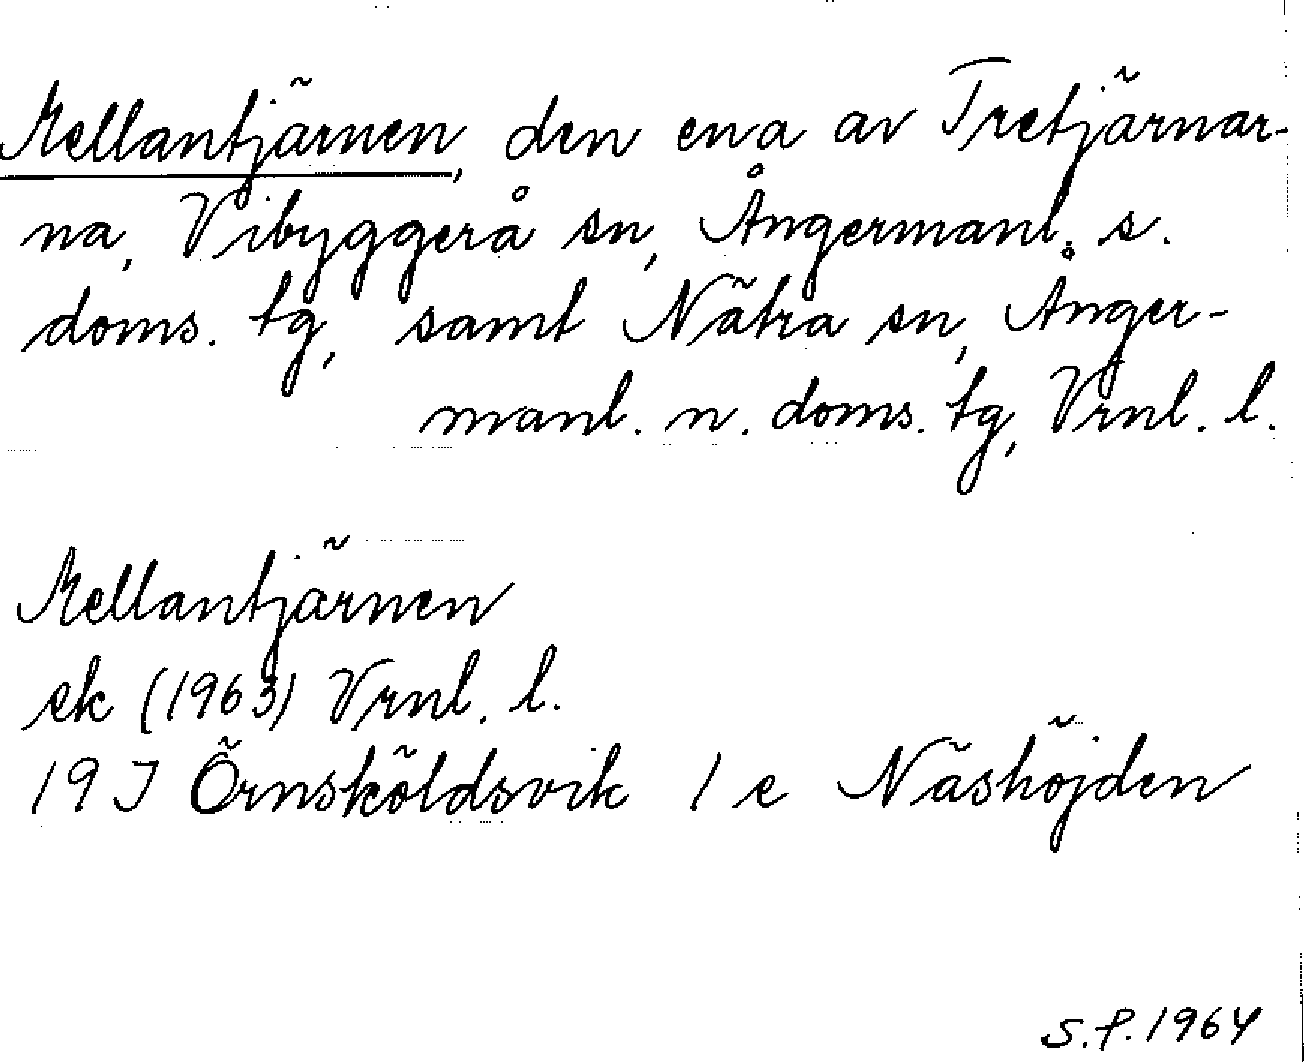 Mellantjärnen, den ena av Tretjärnar-
na, Vibyggerå sn, Ångermanl. s.
doms. tg, samt Nätra sn, Ånger-
manl. n. doms. tg, Vrnl. l.
Mellantjärnen
ek (1963) Vrnl. l.
19 J Örnsköldsvik 1 e Näshöjden
S.P. 1964